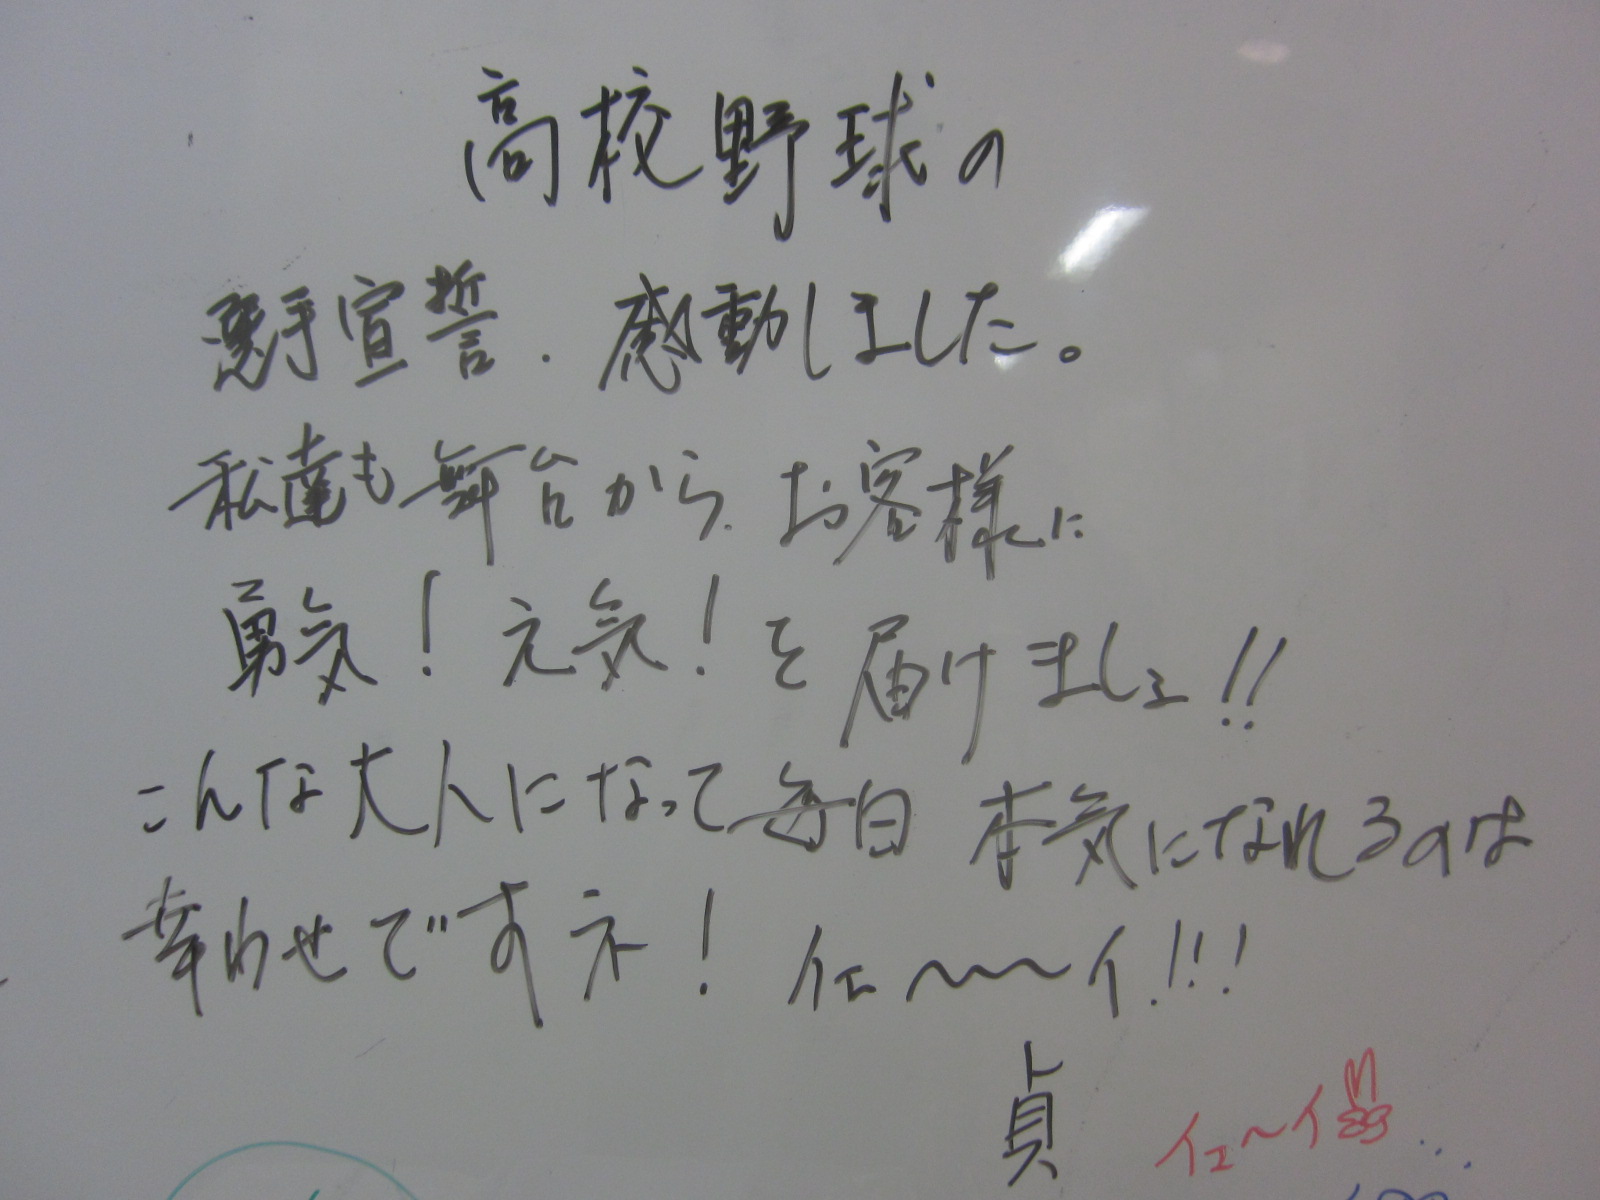 高校野球の
選手宣誓．感動しました。
私達も舞台から、お客様に
勇気！元気！を届けましょ!!
こんな大人になって毎日 本気になれるのは
幸わせですネ！ イェ〜〜イ!!!
貞
イェ〜イ